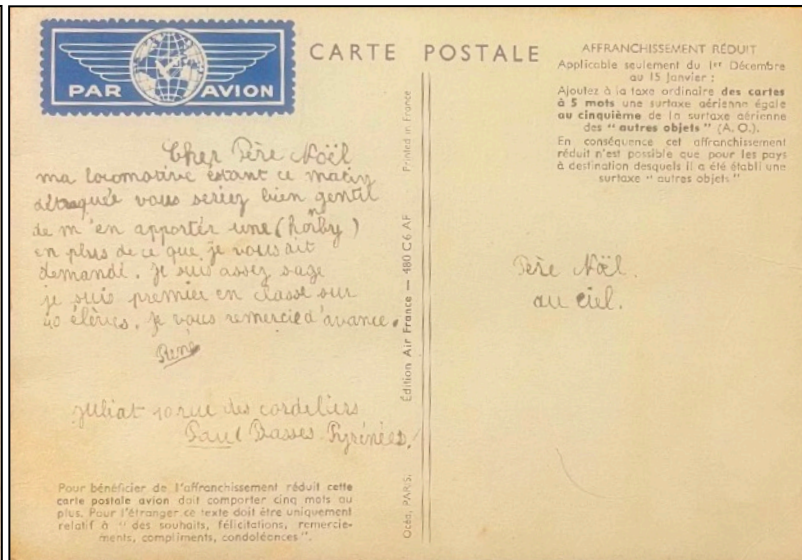 PAR AVION
CARTE POSTALE
AFFRANCHISSEMENT RÉDUIT
Applicable seulement du 1er Décembre
au 15 Janvier :
Ajoutez à la taxe ordinaire des cartes
à 5 mots une surtaxe aérienne égale
au cinquième de la surtaxe aérienne
des "autres objets" (A. O.).
En conséquence cet affranchissement
réduit n'est possible que pour les pays
à destination desquels il a été établi une
surtaxe "autres objets"
Cher Père Noël
ma locomotive étant ce matin
détraquée vous seriez bien gentil
de m'en apporter une (hornby)
en plus de ce que je vous ait
demandé. je suis assez sage
je suis premier en classe sur
40 élèves. je vous remercie d'avance.
René
Juliat 10 rue des cordeliers
Pau Basses-Pyrénées.
Père Noël.
au ciel.
Pour bénéficier de l'affranchissement réduit cette
carte postale avion doit comporter cinq mots au
plus. Pour l'étranger ce texte doit être uniquement
relatif à "des souhaits, félicitations, remercie-
ments, compliments, condoléances".
Océa, PARIS. Édition Air France — 480 C 6 AF Printed in France